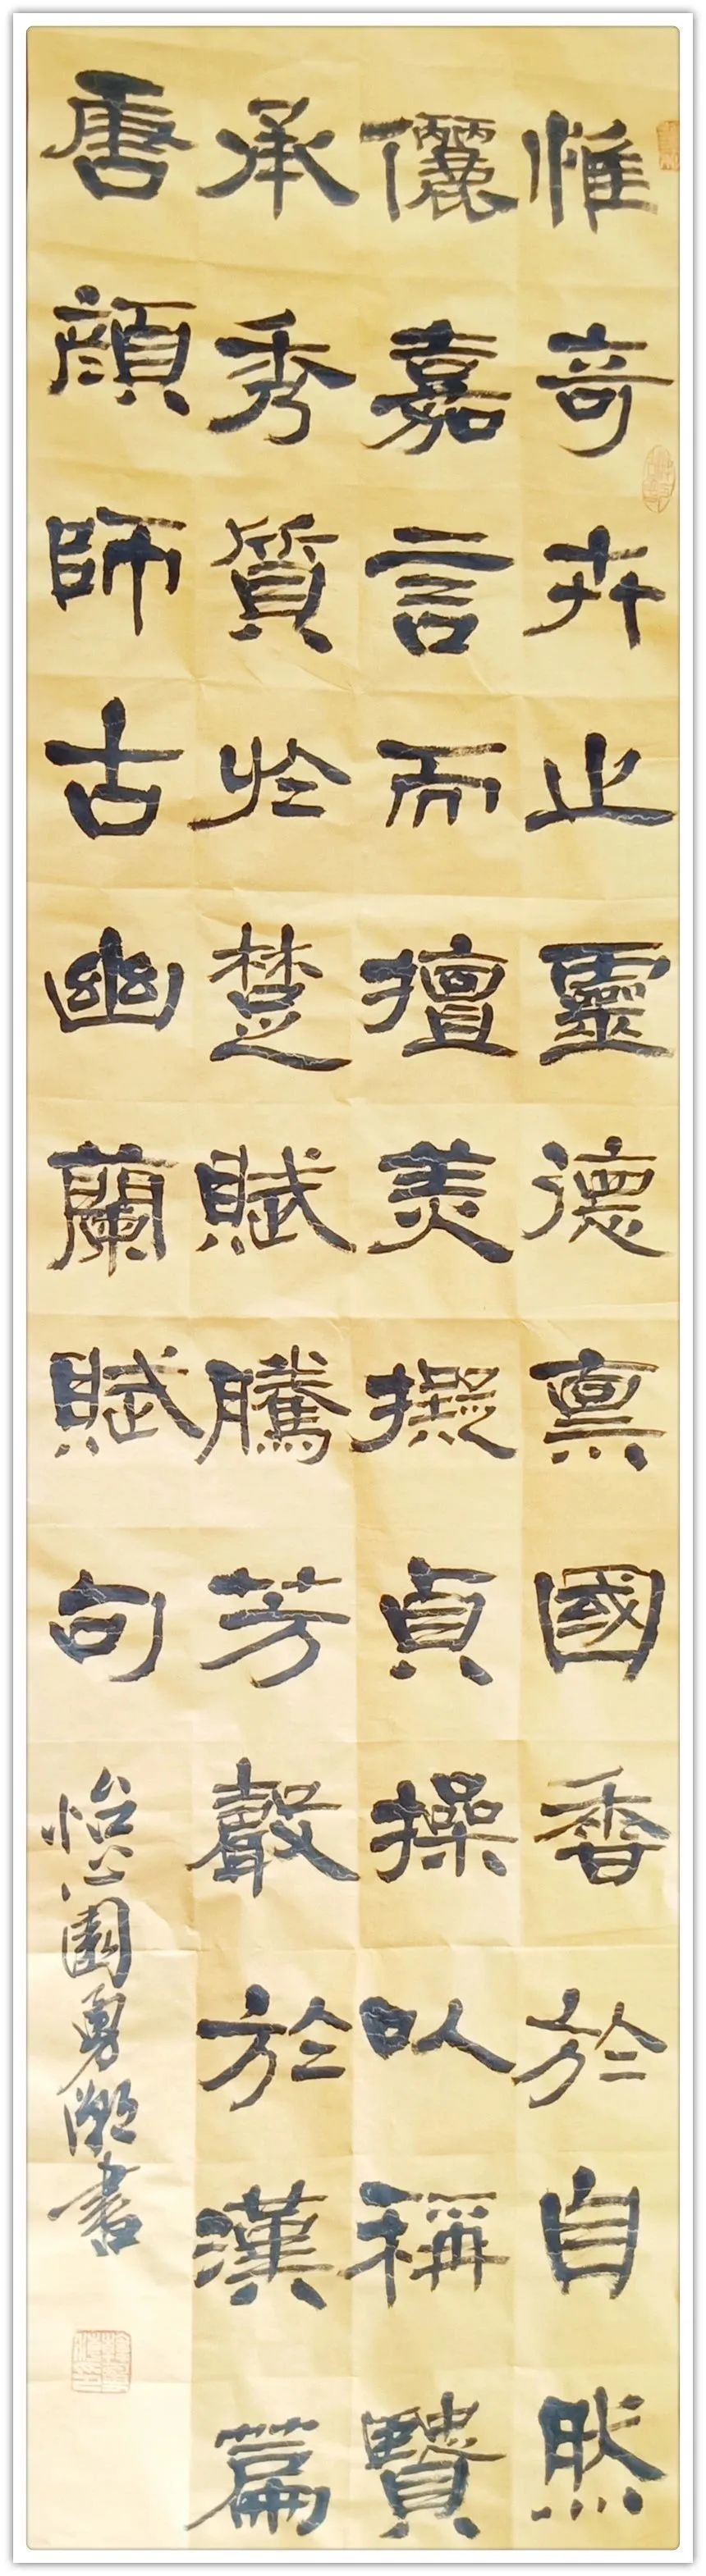 惟奇卉之靈德禀國香於自然
儷嘉言而擅美擬貞操以稱賢
承秀質於楚賦騰芳聲於漢篇
唐顔師古幽蘭賦句
怡心園勇潮書